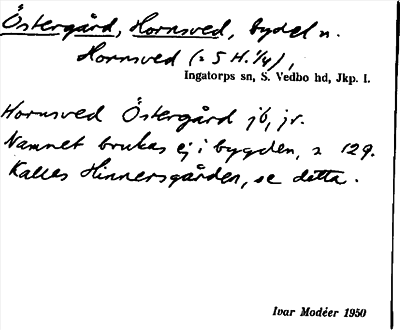 Östergård, Hornsved, bydel n.
Hornsved (= 5 H. 1/4),
Ingatorps sn, S. Vedbo hd, Jkp. l.
Hornsved Östergård jb, jr.
Namnet brukas ej i bygden, s 129.
Kallas Hinnersgården, se detta.
Ivar Modéer 1950